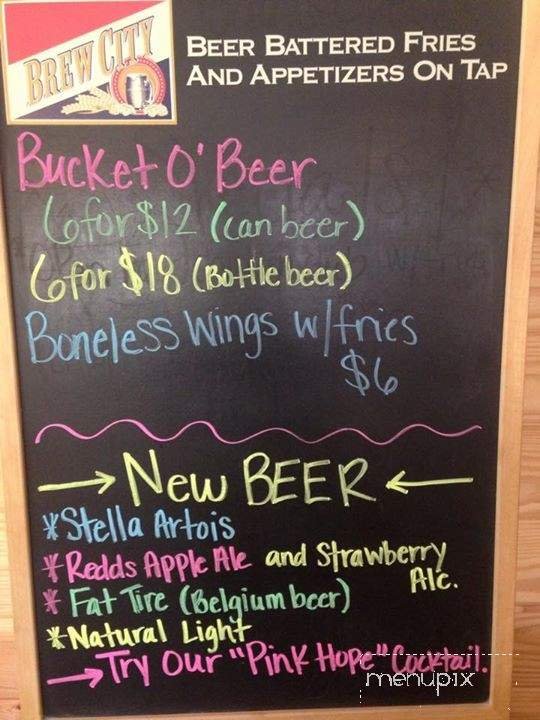 BREW CITY
BEER BATTERED FRIES
AND APPETIZERS ON TAP
Bucket O' Beer
6 for $12 (can beer)
6 for $18 (Bottle beer)
Boneless Wings w/fries
$6
→ New BEER ←
*Stella Artois
*Redds Apple Ale and Strawberry
Ale.
* Fat Tire (Belgium beer)
*Natural Light
→Try our "Pink Hope" Cocktail.
menupix